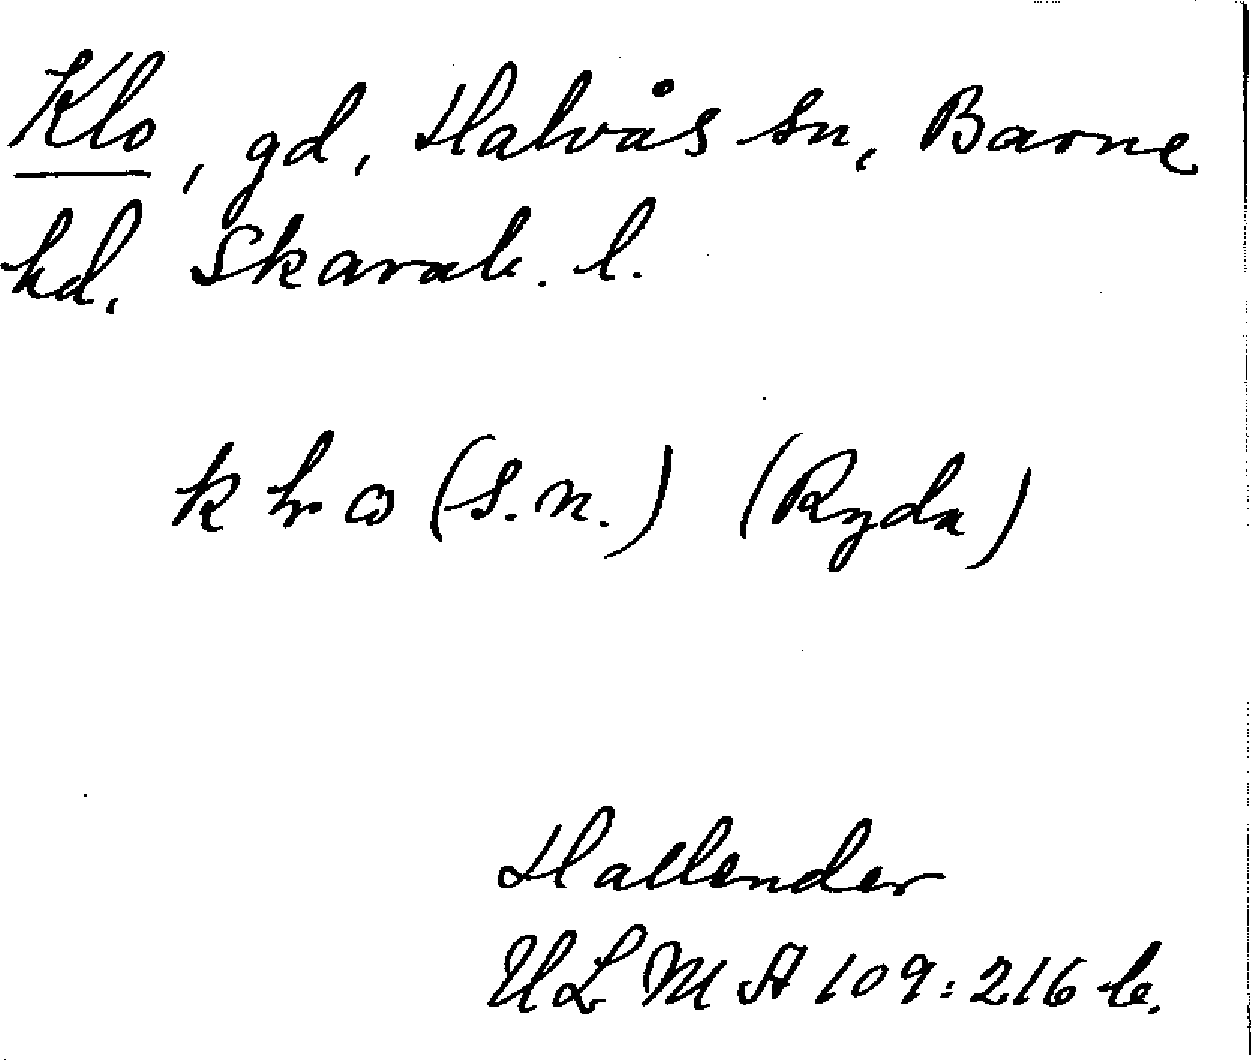 Klo, gd, Halvås sn, Barne
hd. Skarab. l.
k lr ω (s.n.) (Ryda)
Hallender
ULMA 109:216 b.